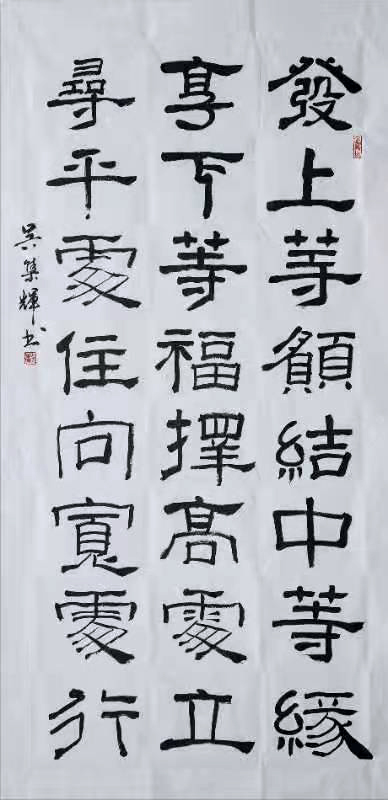 發上等願結中等緣
享下等福擇高處立
尋平處住向寬處行
吴集輝书